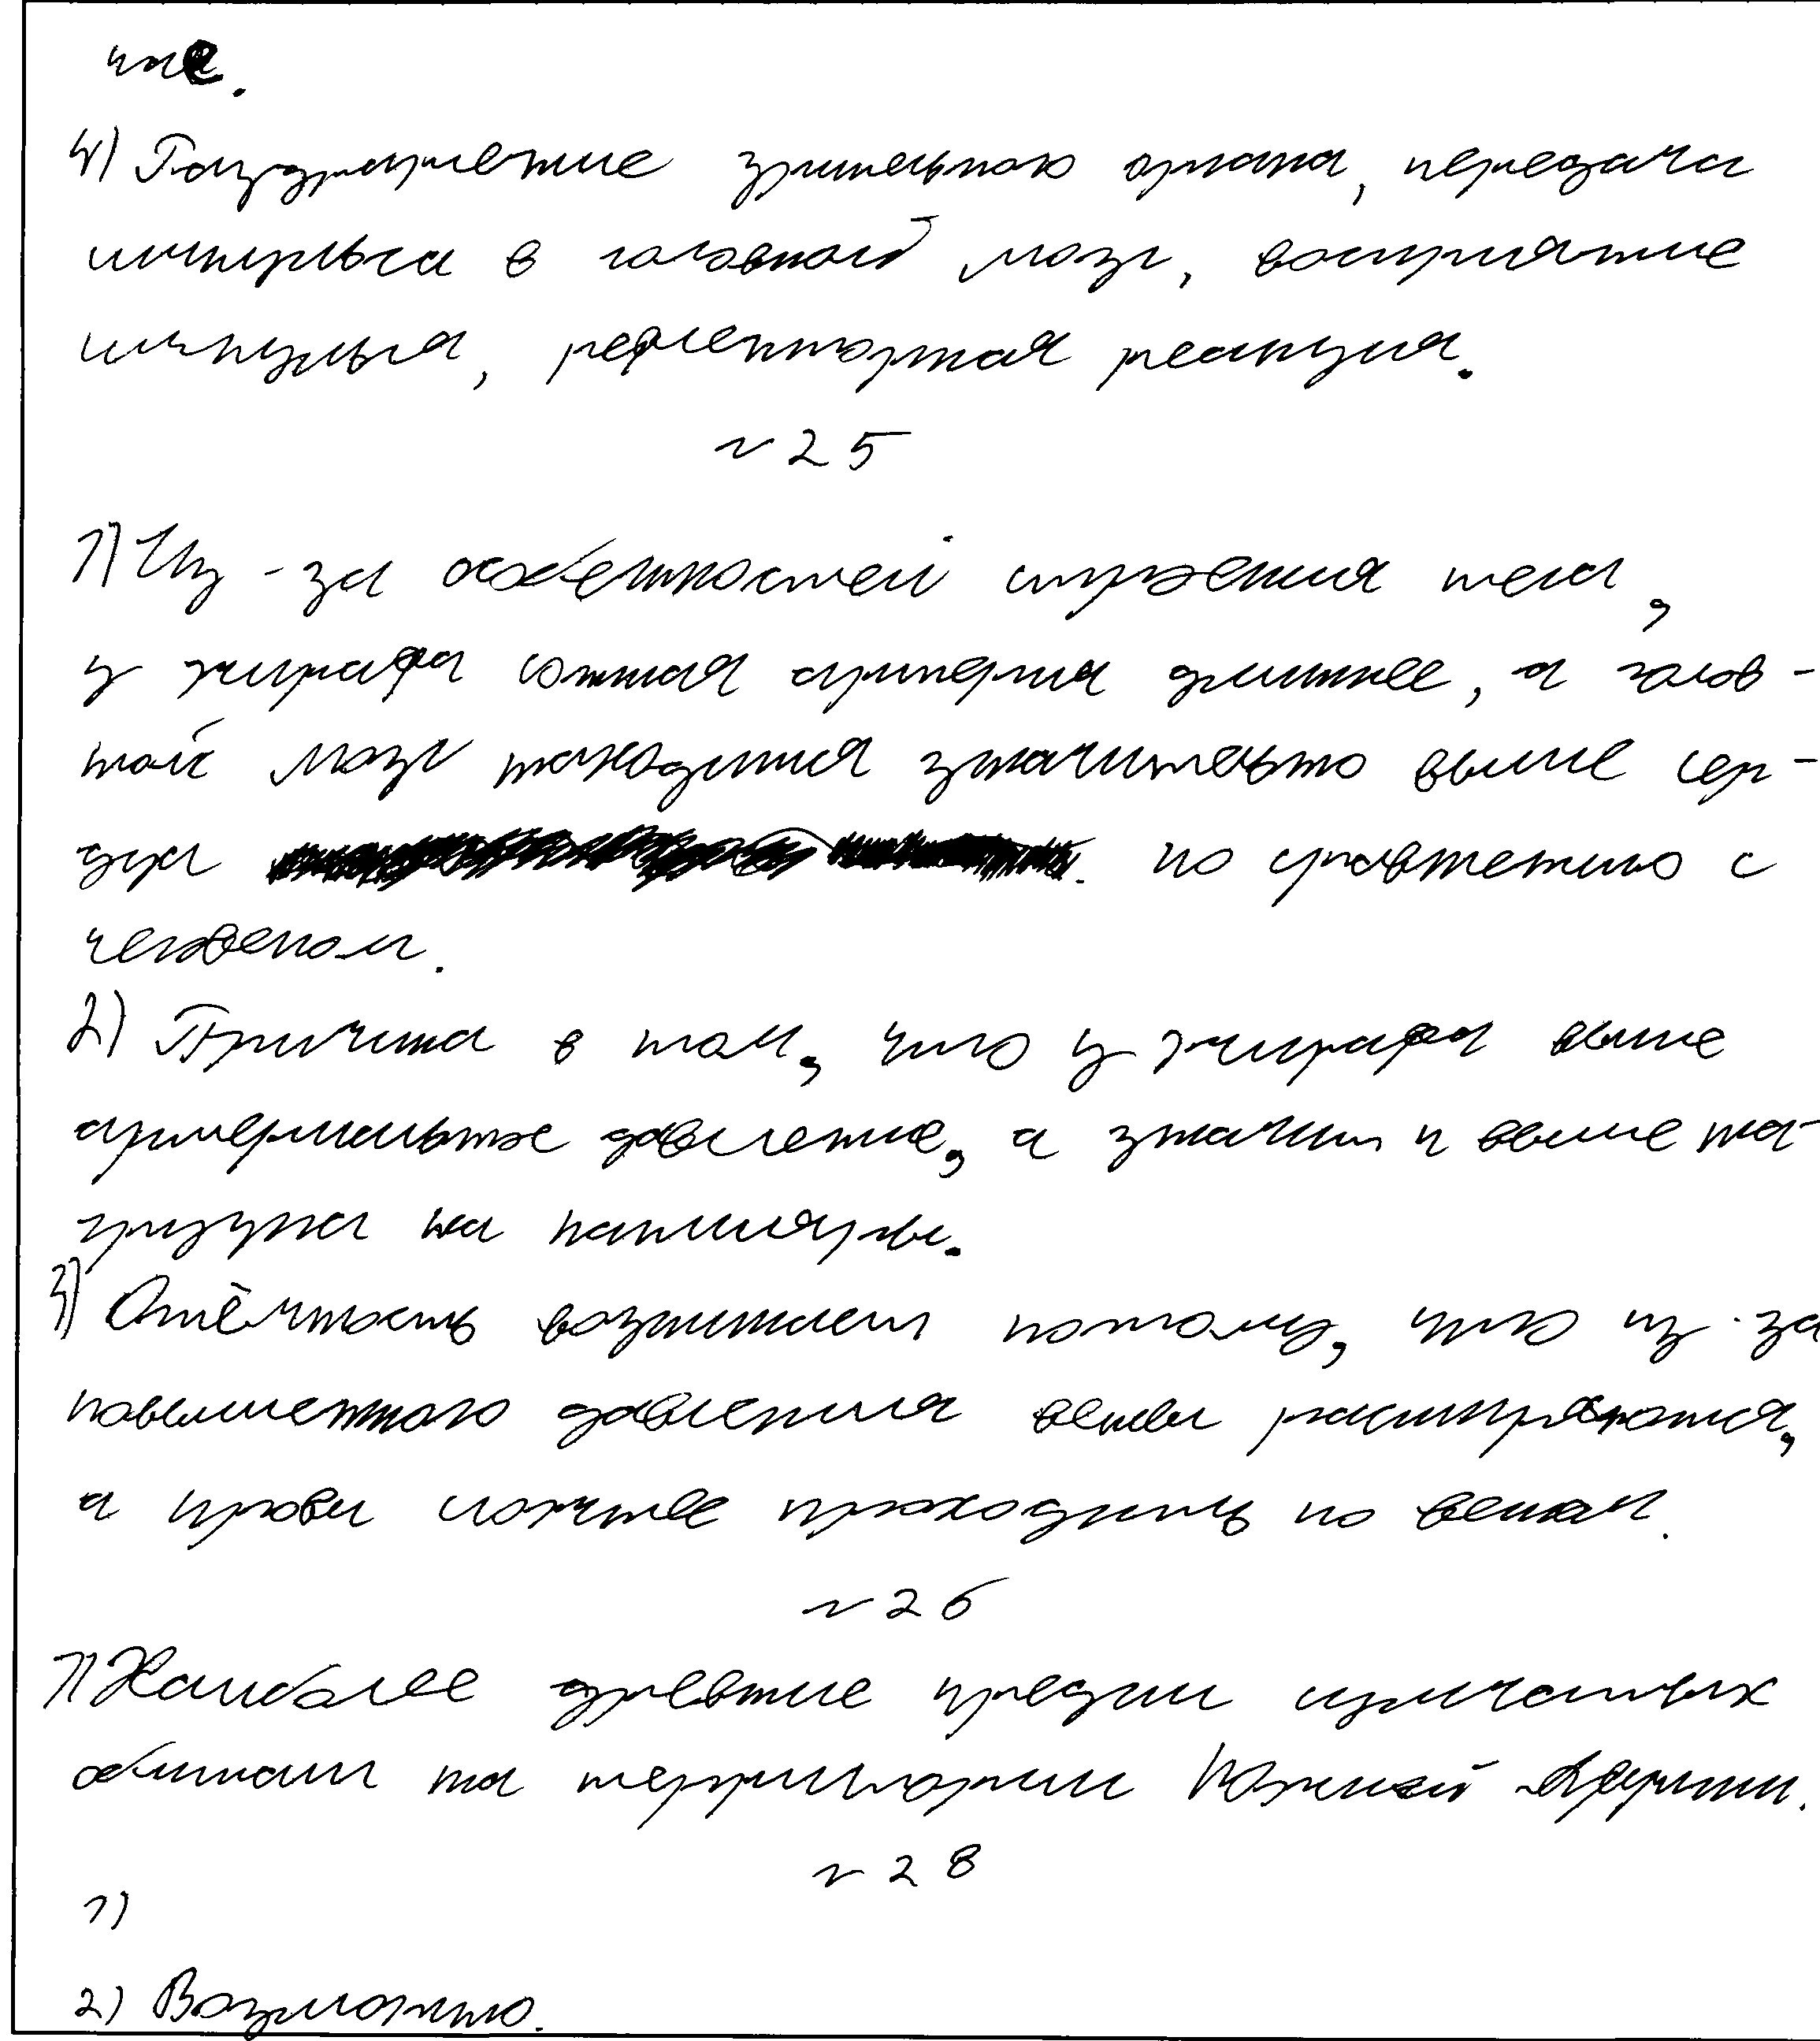 ние.
4) Раздражение зрительного органа, передача
импульса в головной мозг, восприятие
импульса, рефлекторная реакция.
№25
1) Из-за особенностей строения тела,
у жирафа сонная артерия длиннее, а голов-
ной мозг находится значительно выше сер-
дца по сравнению с
человеком.
2) Причина в том, что у жирафа выше
артериальное давление, а значит и выше на-
грузка на капилляры.
3) Отёчность возникает потому, что из-за
повышенного давления вены расширяются,
а крови сложнее проходить по венам.
№26
1) Наиболее древние предки
обитали на территории Южной Африки.
№28
1)
2) Возможно.